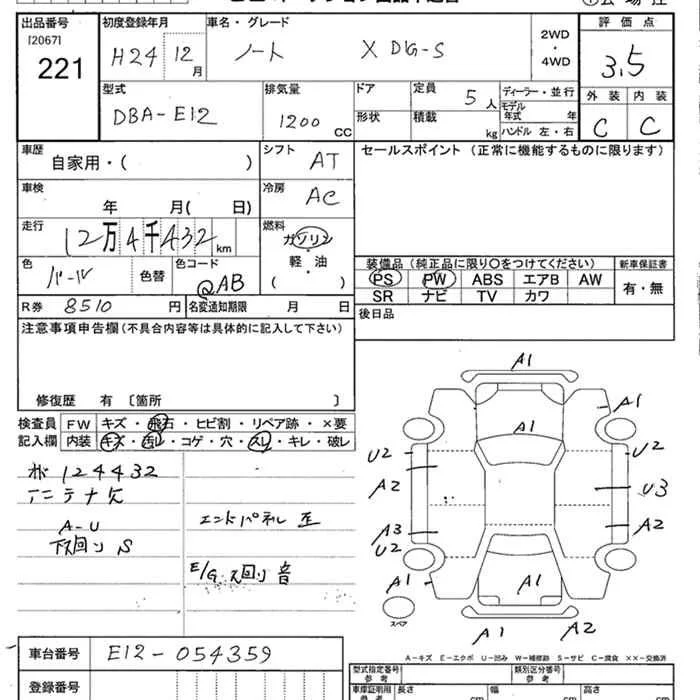 出品番号 初度登録年月 車名・グレード 2WD・4WD 評価点
[2067]
221 H24 12月 ノート X DIG-S 3.5
型式 排気量 ドア 定員 ディーラー・並行 外装 内装
DBA-E12 1200 CC 5人 モデル年式 年 C C
形状 積載 kg ハンドル 左・右
車歴 シフト セールスポイント (正常に機能するものに限ります)
自家用・( ) AT
車検 冷房
年 月( 日) AC
走行 燃料
12万4千432km ガソリン
軽・油
( )
装備品 (純正品に限り○をつけてください) 新車保証書
色 色替 色コード PS PW ABS エアB AW 有・無
パール QAB SR ナビ TV カワ
R券 8510 円 名変通知期限 月 日 後日品
注意事項申告欄(不具合内容等は具体的に記入して下さい)
修復歴 有 〔箇所 〕
検査員 FW キズ・飛石・ヒビ割・リペア跡・×要
記入欄 内装 キズ・汚レ・コゲ・穴・スレ・キレ・破レ
124432
アンテナ欠
A-U
下回り S
エンドパネル 歪
E/G 音
A1
A1
A1
U2 U2
A2 U3
A3 A2
U2
A1 A1
スペア
A1 A2
A-キズ E-エクボ U-凹み W-補修跡 S-サビ C-腐食 ××-交換済
車台番号 E12-054359
型式指定番号 参考 類別区分番号 参考
登録番号 車庫証明用 参考 長さ cm 幅 cm 高さ cm